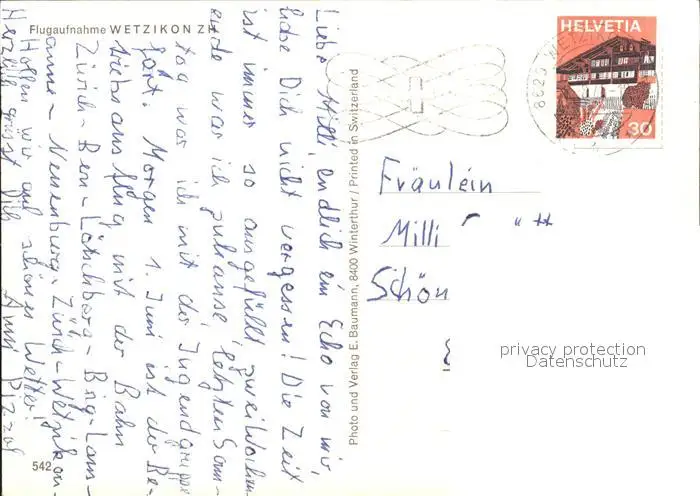 Flugaufnahme WETZIKON ZH
Liebe Milli, endlich ein Echo von mir,
habe Dich nicht vergessen! Die Zeit
ist immer so ausgefüllt, zwei Wochen-
ende war ich zuhause, letzten Sam-
tag war ich mit der Jugendgruppe
fort. Morgen 1. Juni ist der Be-
triebsausflug mit der Bahn
Zürich-Bern-Lötschberg-Brig-Laus-
anne-Neuenburg-Zürich-Wetzikon.
Hoffen wir auf schönes Wetter!
Herzlich grüsst Dich
542
Photo und Verlag E. Baumann, 8400 Winterthur / Printed in Switzerland
HELVETIA
30
8620 WETZIKON
Fräulein
Milli
Schön
privacy protection
Datenschutz